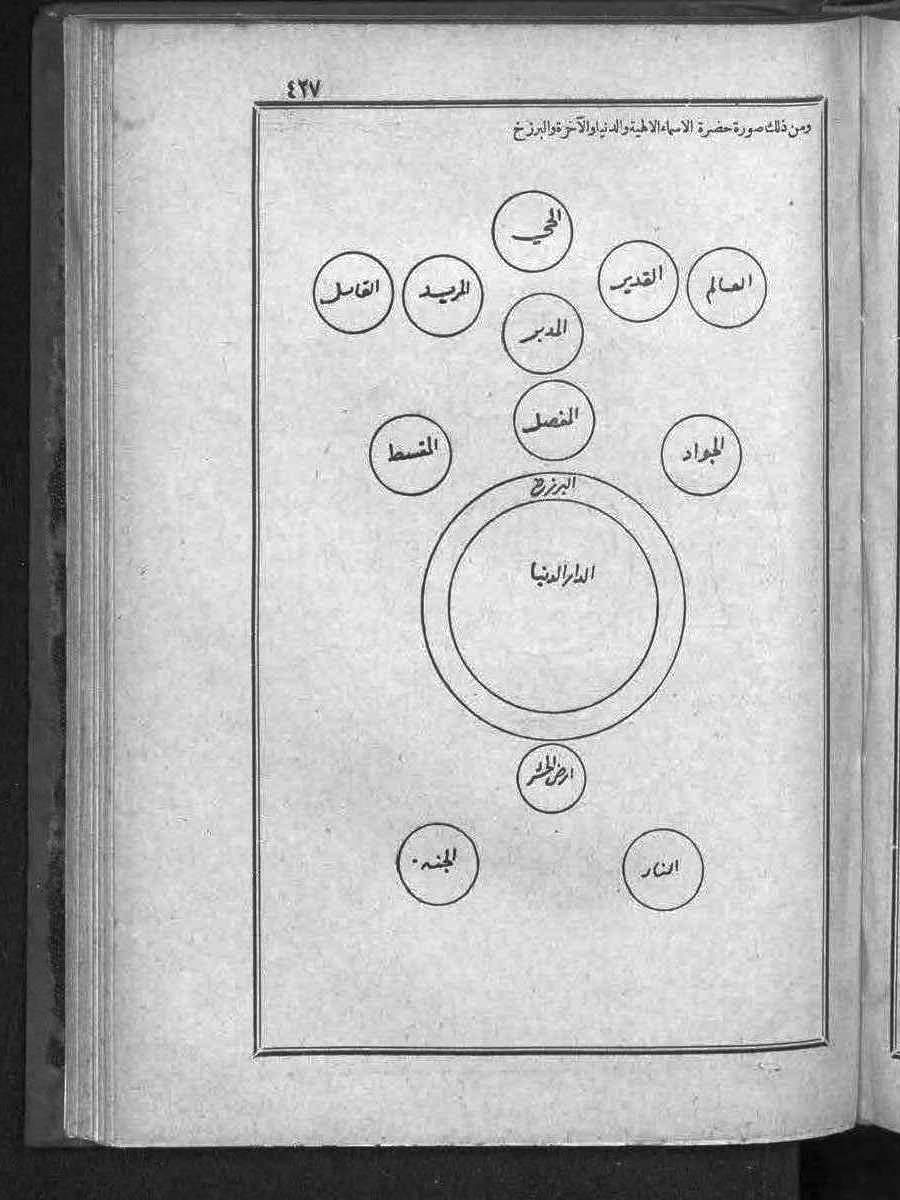 ٤٢٧
ومن ذلك صورة حضرة الاسماء الالهية والدنيا والآخرة والبرزخ
الحي
العالم
القدير
المريد
القائل
المدبر
المفصل
الجواد
المقسط
البرزخ
الدار الدنيا
ارض الحشر
النار
الجنه